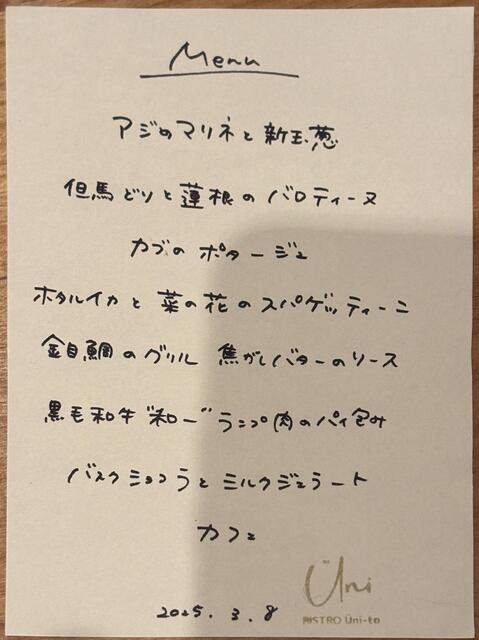 Menu
アジのマリネと新玉葱
但馬どりと蓮根のバロティーヌ
カブのポタージュ
ホタルイカと菜の花のスパゲッティーニ
金目鯛のグリル 焦がしバターのソース
黒毛和牛"和一"ランプ肉のパイ包み
バスクショコラとミルクジェラート
カフェ
Üni
BISTRO Üni-to
2025.3.8